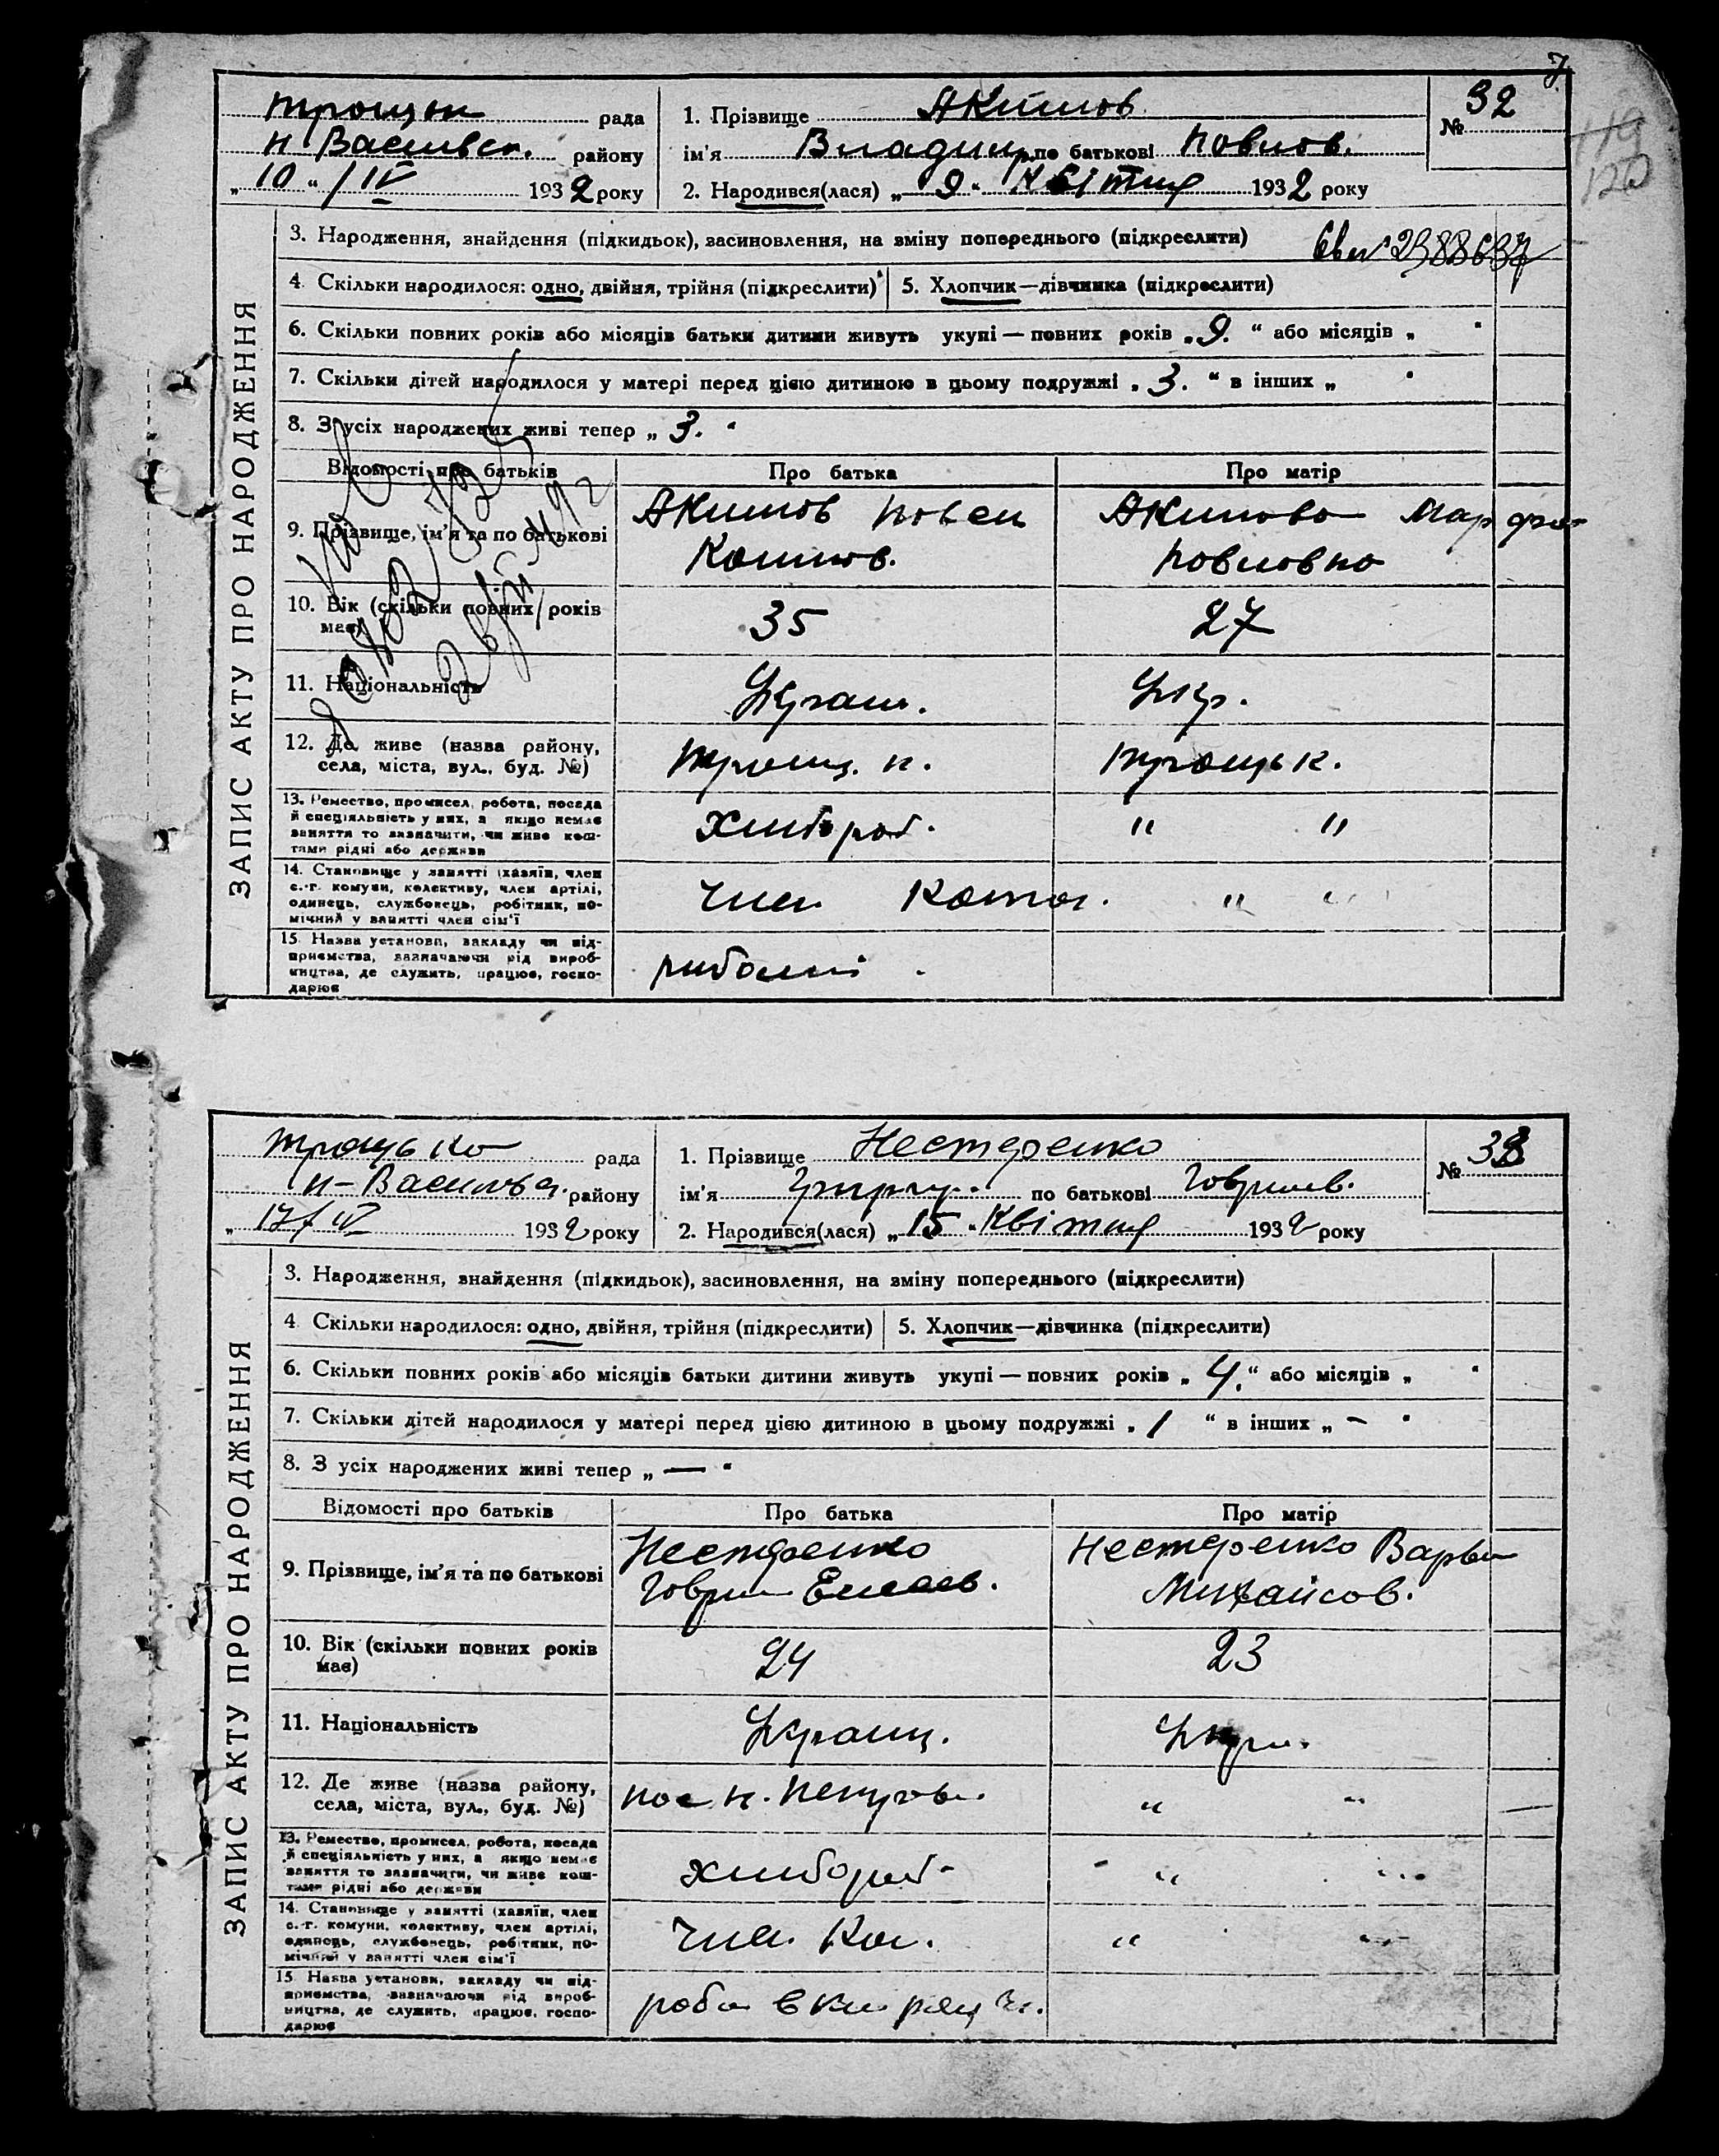 7
рада
№ 32
119
120
1. Прізвище Акимов
н Васильвск. району
ім'я Владим. по батькові Повлов.
„ 10 “ / IV 1932 року
2. Народився(лася) „ 9 “ Квітня 1932 року
ЗАПИС АКТУ ПРО НАРОДЖЕННЯ
3. Народження, знайдення (підкидьок), засиновлення, на зміну попереднього (підкреслити)
4. Скільки народилося: одно, двійня, трійня (підкреслити)
5. Хлопчик—дівчинка (підкреслити)
6. Скільки повних років або місяців батьки дитини живуть укупі — повних років „ 9. “ або місяців „ “
7. Скільки дітей народилося у матері перед цією дитиною в цьому подружжі „ 3. “ в інших „ “
8. З усіх народжених живі тепер „ 3. “
Відомості про батьків
Про батька
Про матір
9. Прізвище, ім'я та по батькові
Акимов Повел
Акимова Марфа
Повловна
10. Вік (скільки повних років має)
35
27
11. Національність
Украин.
Укр.
12. Де живе (назва району, села, міста, вул., буд. №)
13. Ремество, промисел, робота, посада
й спеціяльність у них, а якщо немає
заняття то зазначити, чи живе кош-
тами рідні або держави
Хлибороб.
" "
14. Становище у занятті (хазяїн, член
с.-г. комуни, колективу, член артілі,
одинець, службовець, робітник, по-
мічний у занятті член сім'ї
Член
" "
15. Назва установи, закладу чи під-
приємства, зазначаючи рід вироб-
ництва, де служить, працює, госпо-
дарює
рада
№ 33
1. Прізвище Нестеренко
н-Василівя. району
ім'я
по батькові Говрилов.
„ 17/IV 1932 року
2. Народився(лася) „ 15 “ Квітня 1932 року
ЗАПИС АКТУ ПРО НАРОДЖЕННЯ
3. Народження, знайдення (підкидьок), засиновлення, на зміну попереднього (підкреслити)
4. Скільки народилося: одно, двійня, трійня (підкреслити)
5. Хлопчик—дівчинка (підкреслити)
6. Скільки повних років або місяців батьки дитини живуть укупі — повних років „ 4. “ або місяців „ “
7. Скільки дітей народилося у матері перед цією дитиною в цьому подружжі „ 1 “ в інших „ – “
8. З усіх народжених живі тепер „ — “
Відомості про батьків
Про батька
Про матір
9. Прізвище, ім'я та по батькові
Нестеренко
Говрил
Нестеренко Варва
Михайлов.
10. Вік (скільки повних років має)
24
23
11. Національність
Украин.
12. Де живе (назва району, села, міста, вул., буд. №)
" "
13. Ремество, промисел, робота, посада
й спеціяльність у них, а якщо немає
заняття то зазначити, чи живе кош-
тами рідні або держави
хлибороб
" "
14. Становище у занятті (хазяїн, член
с.-г. комуни, колективу, член артілі,
одинець, службовець, робітник, по-
мічний у занятті член сім'ї
Член Кол.
" "
15. Назва установи, закладу чи під-
приємства, зазначаючи рід вироб-
ництва, де служить, працює, госпо-
дарює